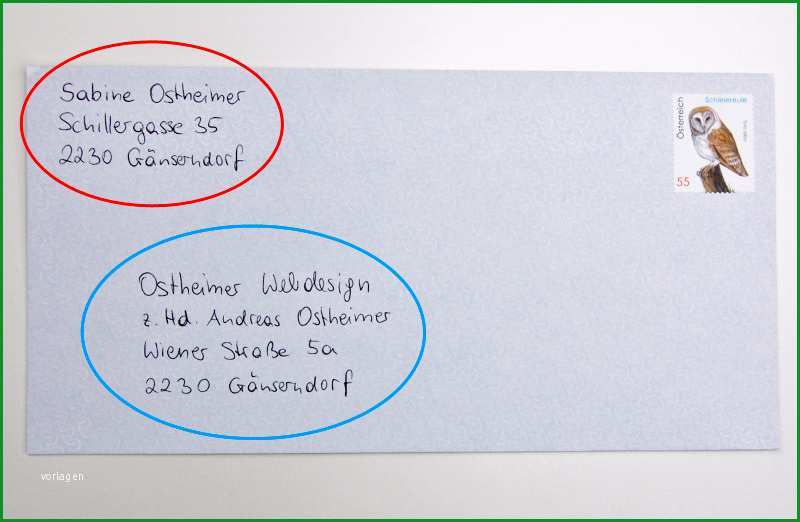 Sabine Ostheimer
Schillergasse 35
2230 Gänserndorf
Österreich
Schleiereule
55
Ostheimer Webdesign
z. Hd. Andreas Ostheimer
Wiener Straße 5a
2230 Gänserndorf
vorlagen